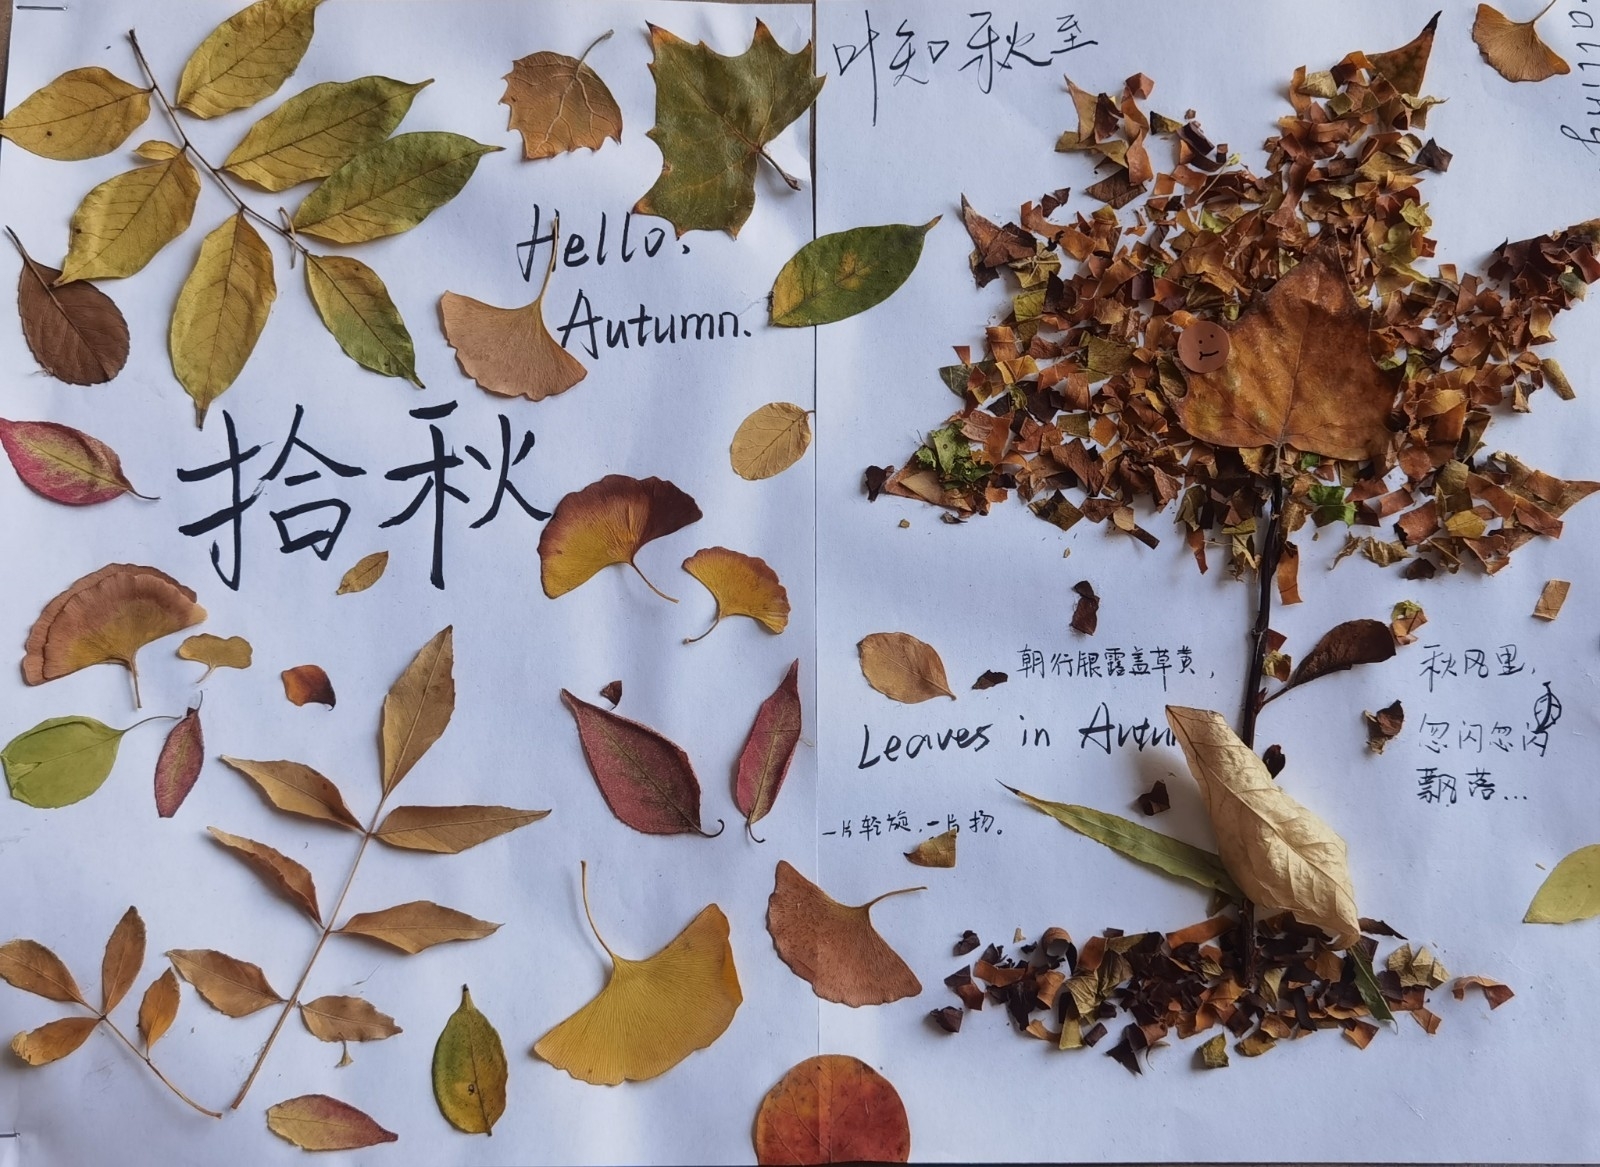 Hello,
Autumn.
拾秋
叶知秋至
alling
朝行银露盖草黄,
Leaves in Autu
一片轻旋,一片扬。
秋风里,
忽闪忽闪
飘落...